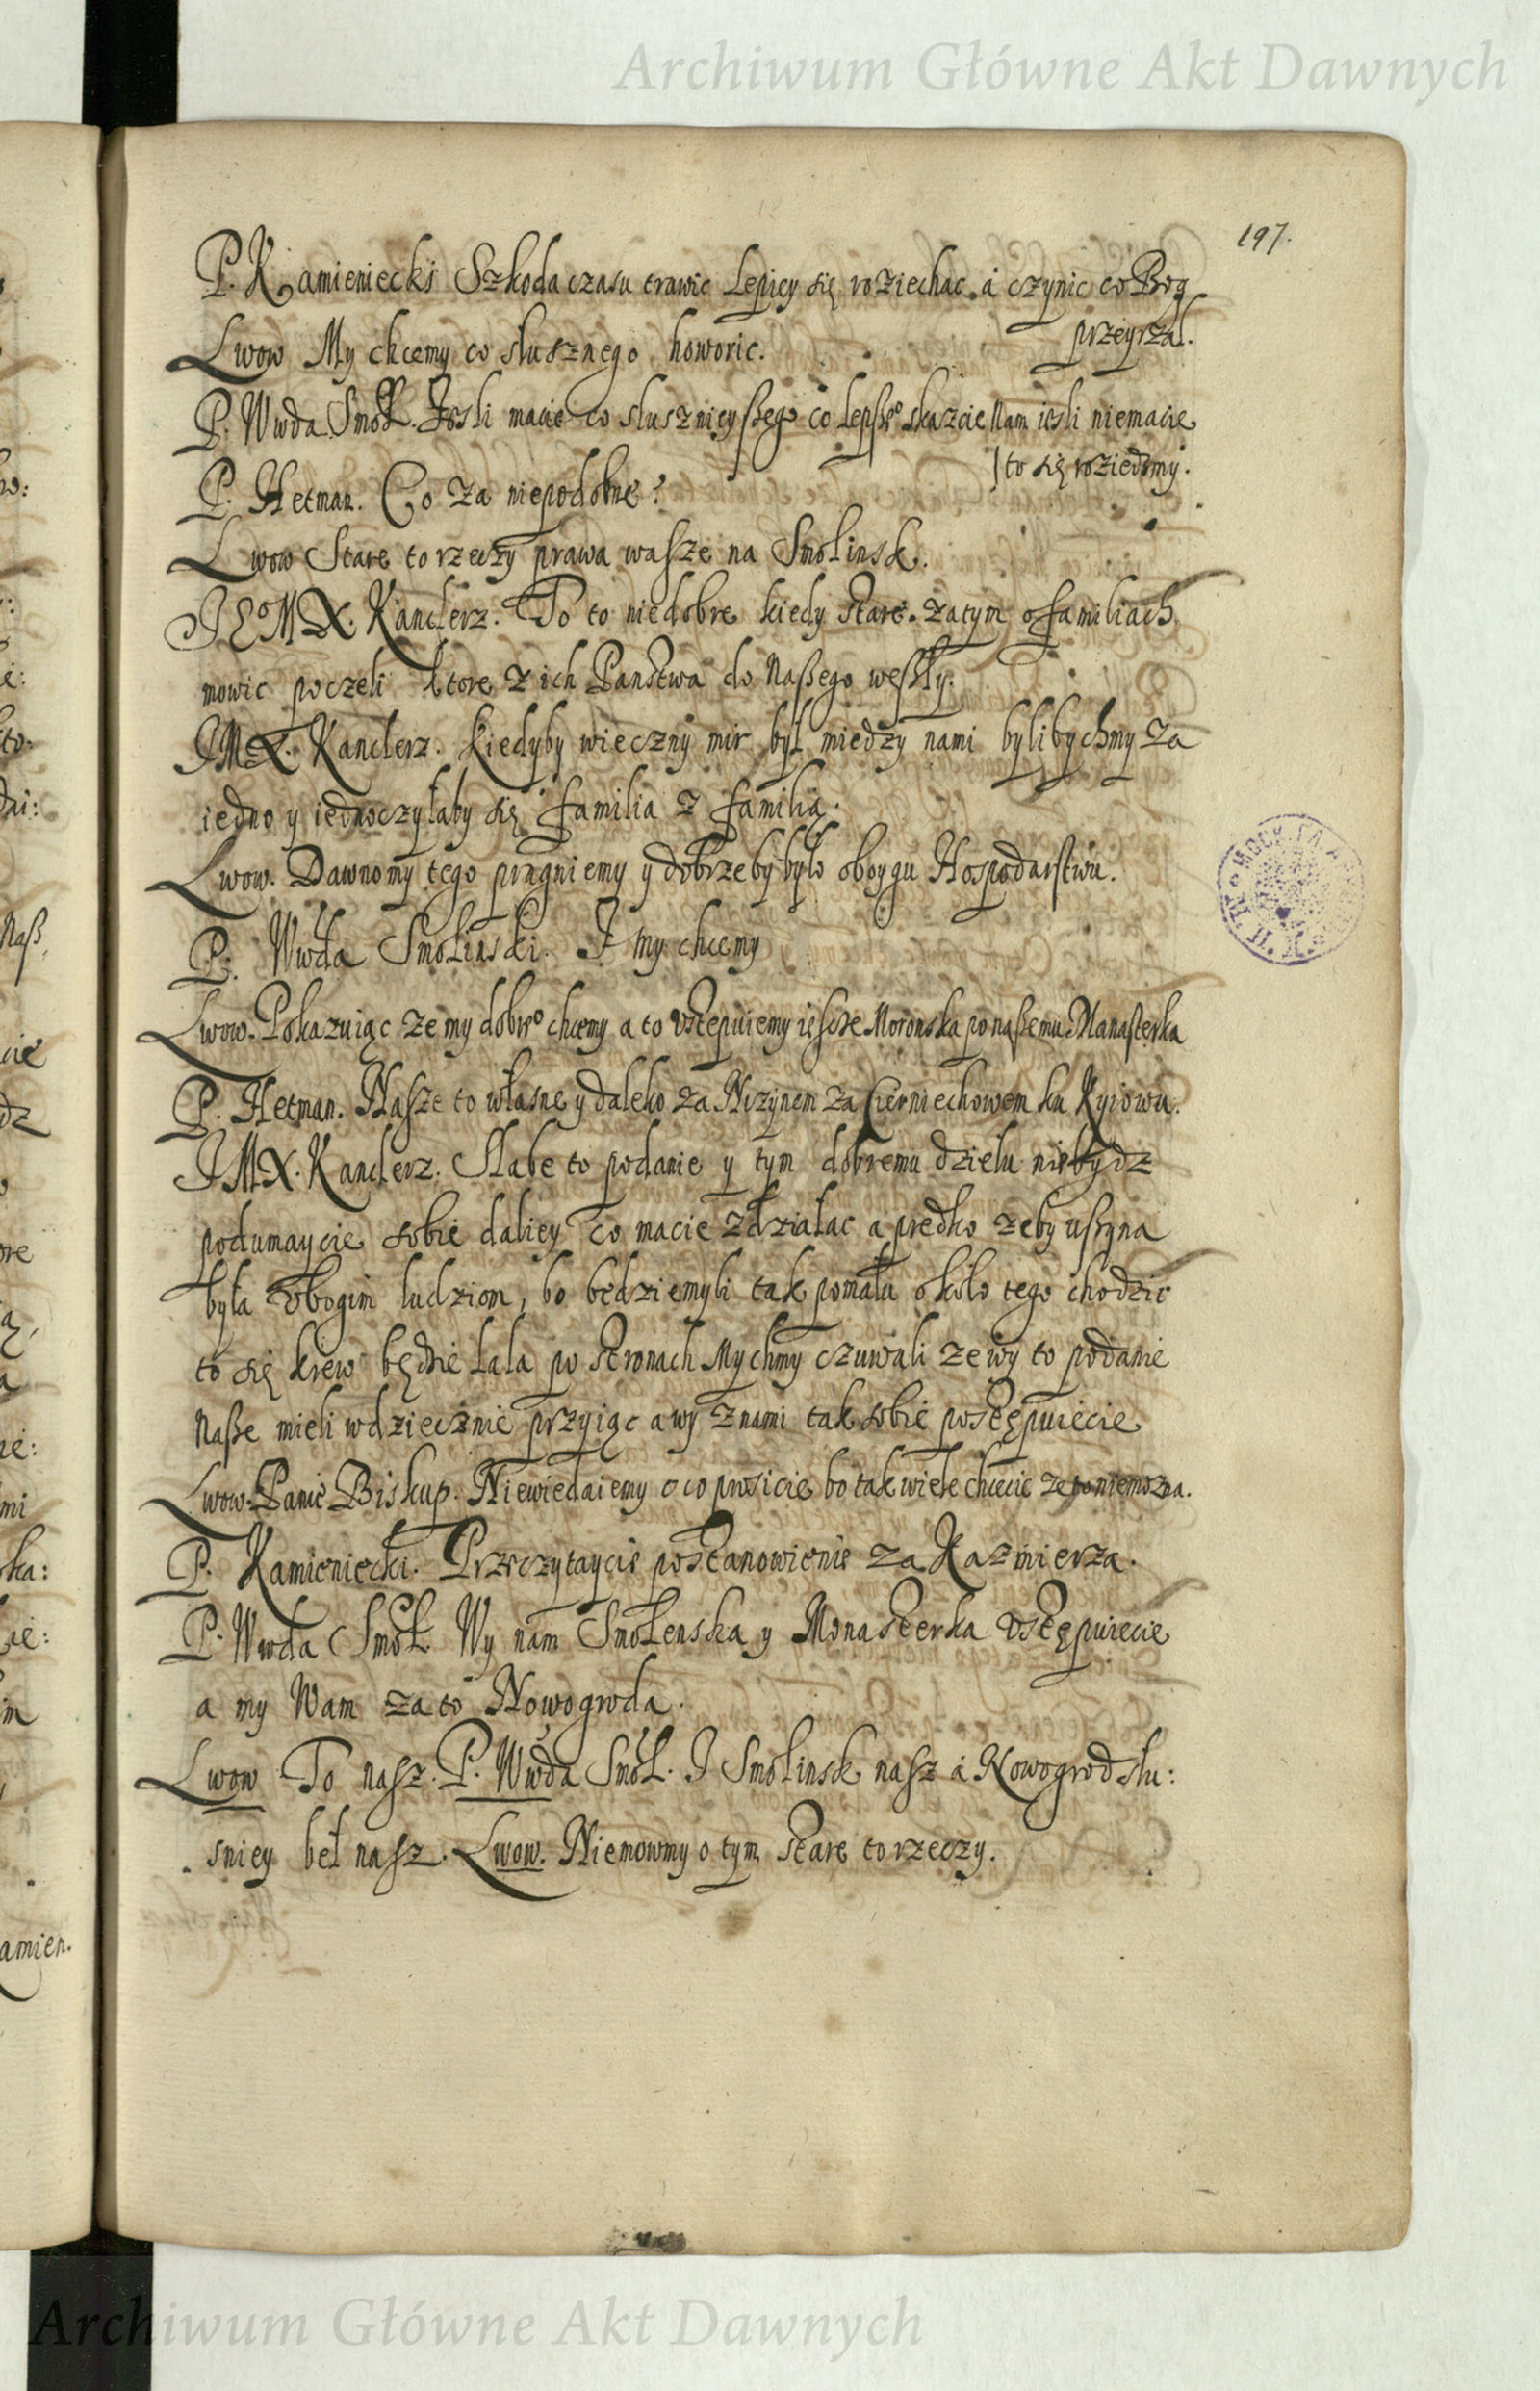 Archiwum Główne Akt Dawnych
197.
P. Kamieniecki Szkoda czasu trawic Lepiey się roziechac. á czynic co Bog
przeyrzał.
Lwow My chcemy co słusznego howoric.
P. Wwda Smoł. Jesli macie co słusznieyßego co Lepße° skaszcie Nam iesli niemacie
to się roziedzmy.
P. Hetman. Co za niepodobne?
Lwow Stare to rzeczy prawa wasze na Smolinsk.
JE°MX. Kanclerz. To to niedobre kiedy stare. zatym o familiach
mowic poczeli ktore z ich Panstwa do Naßego weßły.
JMX. Kanclerz. Kiedyby wieczny mir był miedzy nami bylibychmy za
iedno y iednoczyłaby się familia z familią.
Lwow. Dawno my tego pragniemy y dobrzeby było oboygu Hospodarstwu.
P. Wwda Smolinski. I my chcemy
Lwow. Pokazuiąc ze my dobre° chcemy a to vstepuiemy ießcze Moronska po naßemu Manasterka
P. Hetman. Nasze to własne y daleko za Nizynem za Cierniechowem ku Kyiowu.
JMX. Kanclerz. Słabe to podanie y tym dobremu dziełu niebydz
podumaycie sobie daliey co macie zdziałac a predko zeby ußyna
była vbogim ludziom, bo będziemyli tak pomału około tego chodzic
to się krew będzie lała po stronach Mychmy czuwali ze wy to podanie
Naße mieli wdziecznie przyiąc a wy z nami tak sobie postępuiecie
Lwow. Panie Biskup. Niewiedaiemy o co prosicie bo tak wiele chcecie ze to niemozna.
P. Kamieniecki. Przeczytaycie postanowienie za Kazmierza.
P. Wwda Smoł. Wy nam Smolenska y Monasterka vstępuiecie
a my Wam za to Nowogroda.
Lwow To nasz. P. Wwda Smoł. I Smolinsk nasz á Nowogrod słu:
sniey beł nasz. Lwow. Niemowmy o tym stare to rzeczy.
Archiwum Główne Akt Dawnych